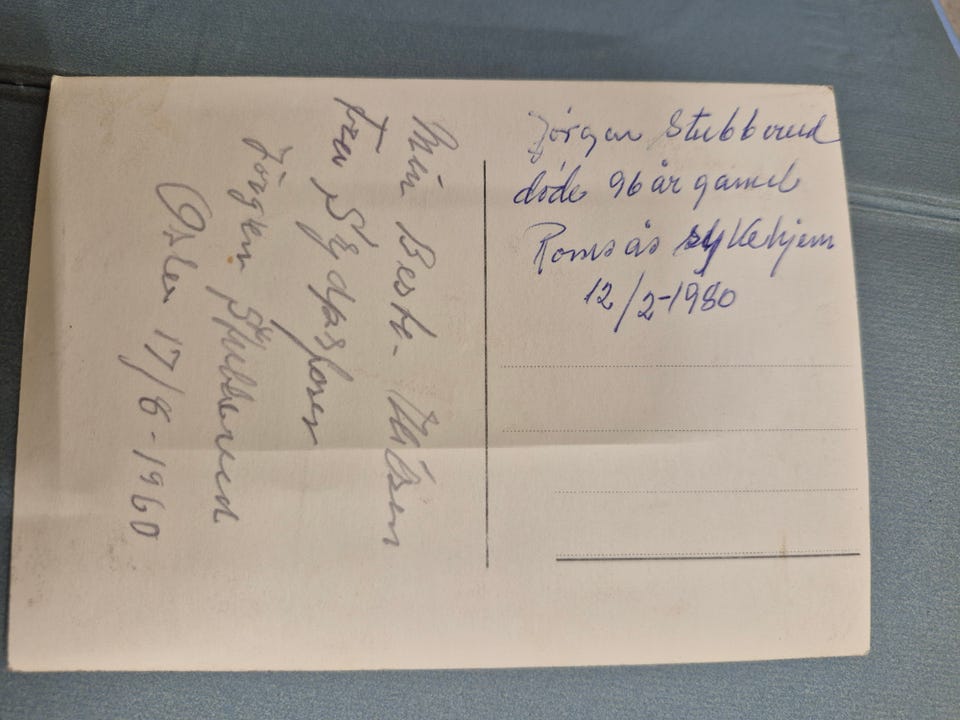 Min Beste- Hilsen
Fra Sydpolfarer
Jörgen Stubberud
Oslo 17/8-1960
Jørgen Stubberud
døde 96 år gamel
Romsås sykehjem
12/2-1980